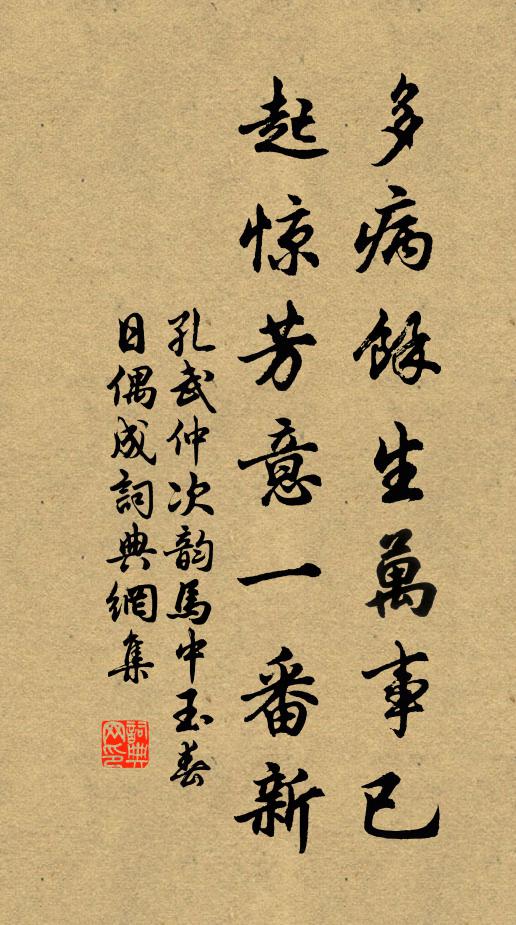 多病餘生萬事已
起惊芳意一番新
孔武仲次韵馬中玉春
日偶成詞典網集
詞典
网印